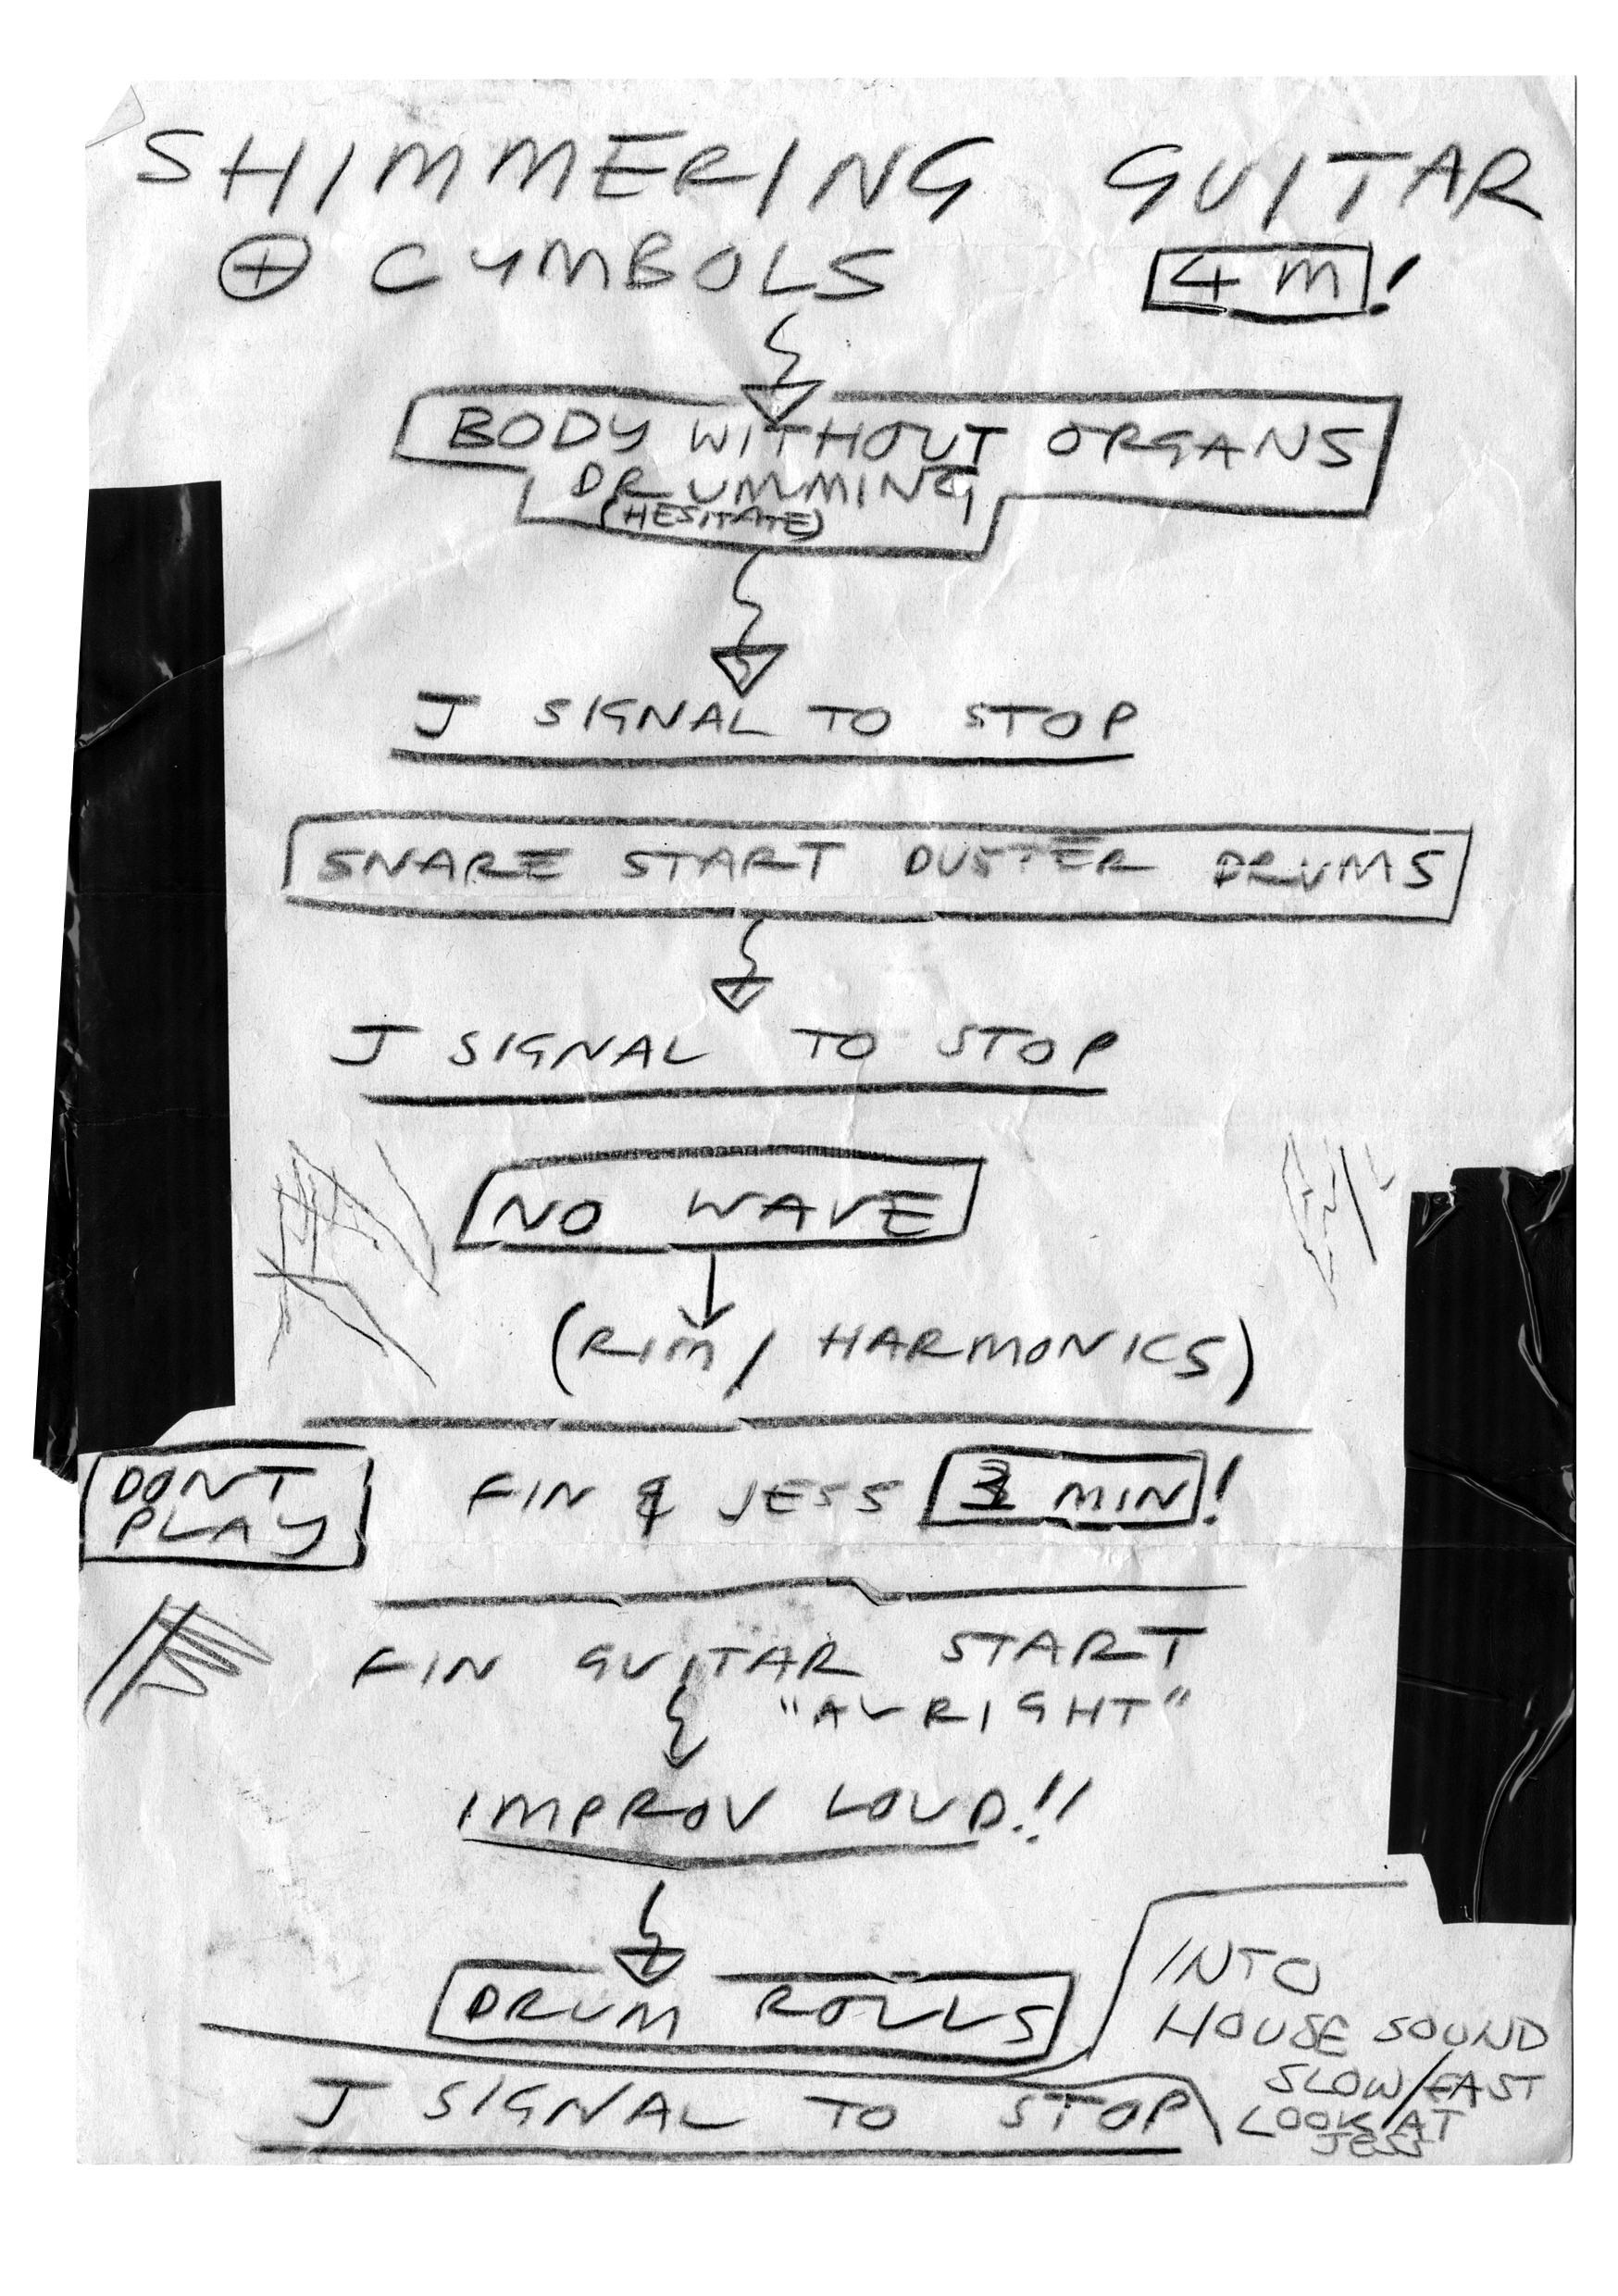 SHIMMERING GUITAR
⊕ CYMBOLS 4 M!
BODY WITHOUT ORGANS
DRUMMING
(HESITATE)
J SIGNAL TO STOP
SNARE START DUSTER DRUMS
J SIGNAL TO STOP
NO WAVE
(RIM / HARMONICS)
DONT
PLAY
FIN & JESS 3 MIN!
FIN GUITAR START
"ALRIGHT"
IMPROV LOUD!!
DRUM ROLLS
J SIGNAL TO STOP
INTO
HOUSE SOUND
SLOW/FAST
LOOK AT
JESS